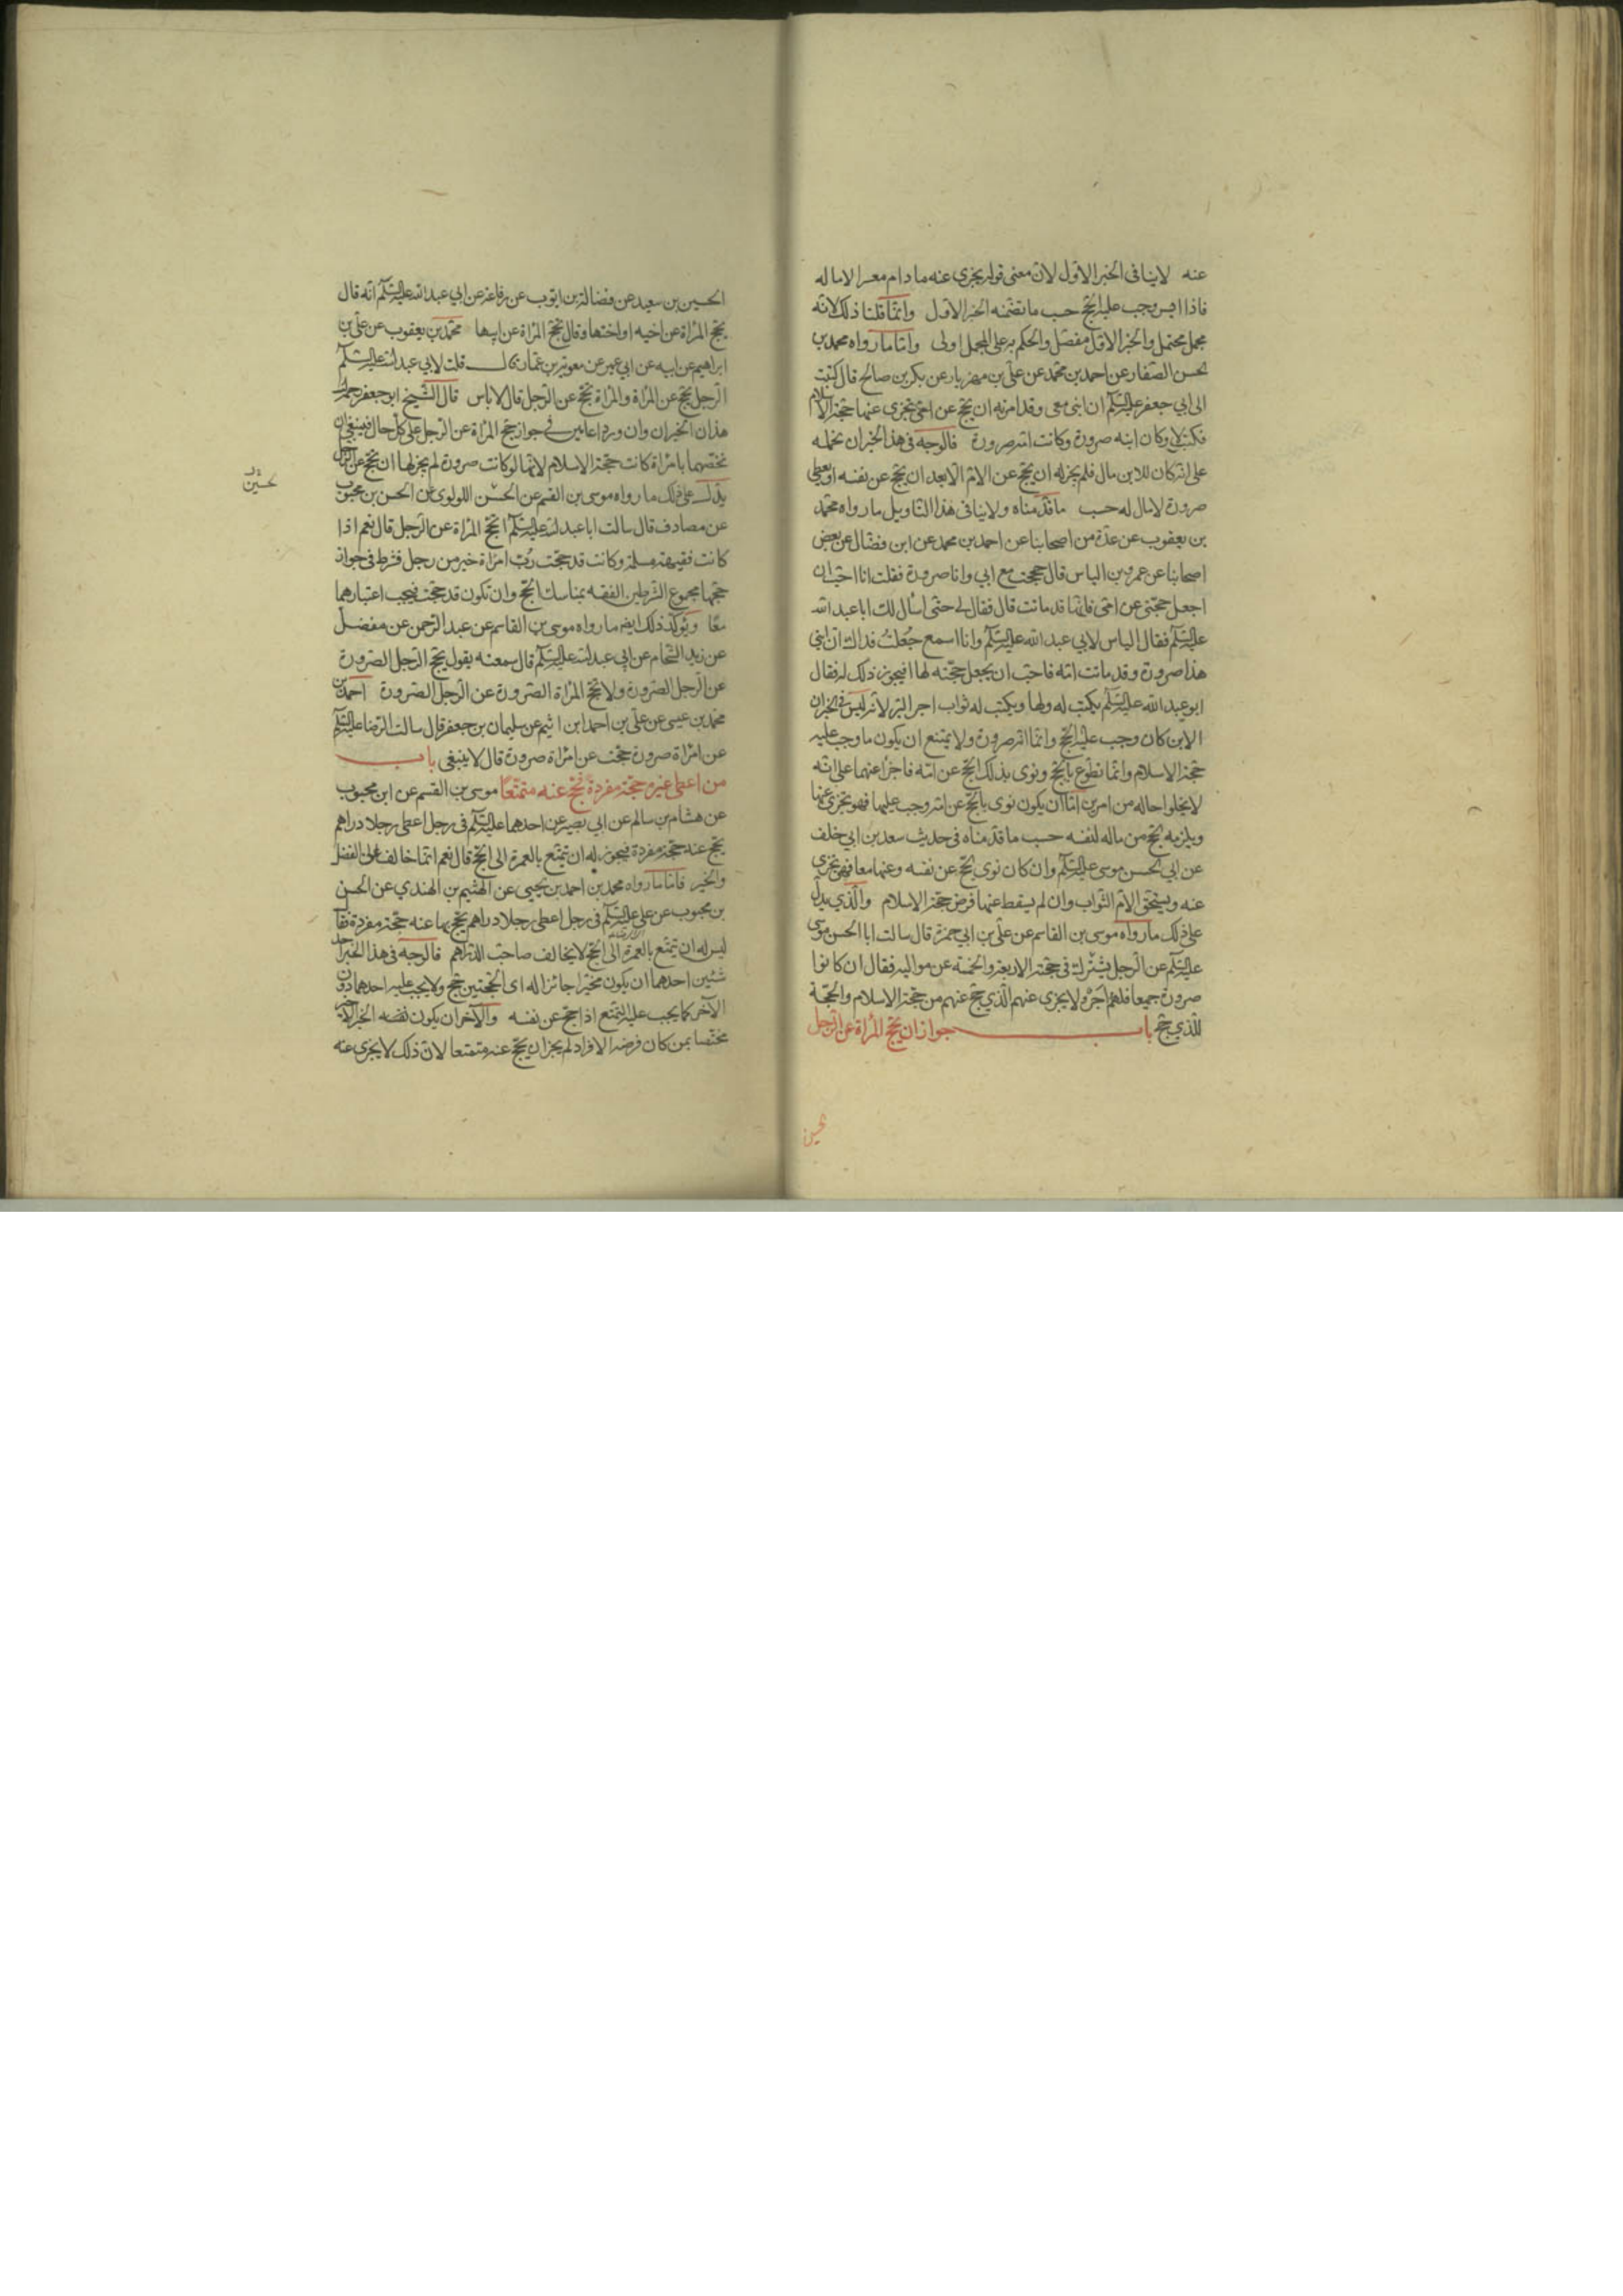 عنه لا ينافى الخبر الاول لان معنى قوله يجزى عنه ما دام معسرا لا مال له
فاذا ايسر وجب عليه الحج حسب ما تضمنه الخبر الاول وانما قلنا ذلك لانه
مجمل محتمل والخبر الاول مفصل والحكم به على المجمل اولى واما ما رواه محمد بن
الحسن الصفار عن احمد بن محمد عن علي بن مهزيار عن بكر بن صالح قال كتبت
الى ابي جعفر عليه السلام ان ابنى معى وقد امرته ان يحج عن امى يجزى عنها حجة الاسلام
فكتب لا وكان ابنه صرورة وكانت امه صرورة فالوجه فى هذا الخبر ان نحمله
على انه كان للابن مال فلم يجز له ان يحج عن الام الا بعد ان يحج عن نفسه او يعطى
صرورة لا مال له حسب ما قدمناه ولا ينافى هذا التاويل ما رواه محمد
بن يعقوب عن عدة من اصحابنا عن احمد بن محمد عن ابن فضال عن بعض
اصحابنا عن عمرو بن الياس قال حججت مع ابي وانا صرورة فقلت انا احب ان
اجعل حجتى عن امى فانها قد ماتت قال فقال لى حتى اسأل لك ابا عبد الله
عليه السلام فقال الياس لابي عبد الله عليه السلام وانا اسمع جعلت فداك ان ابنى
هذا صرورة وقد ماتت امه فاحب ان يجعل حجته لها افيجوز ذلك له فقال
ابو عبد الله عليه السلام يكتب له ولها ويكتب له ثواب اجر البر لانه ليس فى الخبر ان
الابن كان وجب عليه الحج وانما انه صرورة ولا يمتنع ان يكون ما وجب عليه
حجة الاسلام وانما تطوع بالحج ونوى بذلك الحج عن امه فاجزا عنهما على انه
لا يخلوا حاله من امرين اما ان يكون نوى بالحج عن امه وجب عليها فهو يجزى عنها
ويلزمه الحج من ماله لنفسه حسب ما قدمناه فى حديث سعد بن ابي خلف
عن ابي الحسن موسى عليه السلام وان كان نوى الحج عن نفسه وعنها معا فهو يجزى
عنه ويستحق الام الثواب وان لم يسقط عنها فرض حجة الاسلام والذي يدل
على ذلك ما رواه موسى بن القاسم عن علي بن ابي حمزة قال سالت ابا الحسن موسى
عليه السلام عن الرجل يشرك فى حجته الاربعة والخمسة عن مواليه فقال ان كانوا
صرورة جميعا فلهم اجر ولا يجزى عنهم الذي حج عنهم من حجة الاسلام والحجة
للذي حج باب جواز ان يحج المرأة عن الرجل
الحسين
الحسين بن سعيد عن فضالة بن ايوب عن رفاعة عن ابي عبد الله عليه السلام انه قال
يحج المرأة عن اخيه او اختها وقال تحج المرأة عن ابيها محمد بن يعقوب عن علي بن
ابراهيم عن ابيه عن ابي عمير عن معوية بن عمار قال قلت لابي عبد الله عليه السلام
الرجل يحج عن المرأة والمرأة تحج عن الرجل قال لا باس قال الشيخ ابو جعفر رحمه الله
هذان الخبران وان وردا عامين في جواز حج المرأة عن الرجل على كل حال فينبغي ان
نخصهما بامرأة كانت حجت حجة الاسلام لانها لو كانت صرورة لم يجز لها ان تحج عن الرجل
يدل على ذلك ما رواه موسى بن القسم عن الحسن اللولوى عن الحسن بن محبوب
حسين
عن مصادف قال سالت ابا عبد الله عليه السلام اتحج المرأة عن الرجل قال نعم اذا
كانت فقيهة مسلمة وكانت قد حجت رب امرأة خير من رجل فشرط فى جواز
حجها مجموع الشرطين الفقه بمناسك الحج وان تكون قد حجت فيجب اعتبارهما
معا ويؤكد ذلك ايضا ما رواه موسى بن القاسم عن عبد الرحمن عن مفضل
عن زيد الشحام عن ابي عبد الله عليه السلام قال سمعته يقول يحج الرجل الصرورة
عن الرجل الصرورة ولا تحج المرأة الصرورة عن الرجل الصرورة احمد بن
محمد بن عيسى عن علي بن احمد ابن اشيم عن سليمان بن جعفر قال سالت الرضا عليه السلام
عن امرأة صرورة حجت عن امرأة صرورة قال لا ينبغى باب
من اعطى غيره حجة مفردة فحج عنه متمتعا موسى بن القسم عن ابن محبوب
عن هشام بن سالم عن ابي بصير عن احدهما عليه السلام فى رجل اعطى رجلا دراهم
يحج عنه حجة مفردة فيجوز له ان يتمتع بالعمرة الى الحج قال نعم انما خالف الى الفضل
والخير فاما ما رواه محمد بن احمد بن يحيى عن الهيثم بن الهندي عن الحسن
بن محبوب عن علي عليه السلام فى رجل اعطى رجلا دراهم يحج بها عنه حجة مفردة قال
ليس له ان يتمتع بالعمرة الى الحج لا يخالف صاحب الدراهم فالوجه فى هذا الخبر احد
شيئين احدهما ان يكون مخيرا جائزا له اى الحجتين حج ولا يجب عليه احدهما دون
الآخر كما يجب عليه التمتع اذا حج عن نفسه والآخر ان يكون الخبر الاخير
مختصا بمن كان فرضه الافراد لم يجز ان يحج عنه متمتعا لان ذلك لا يجزى عنه